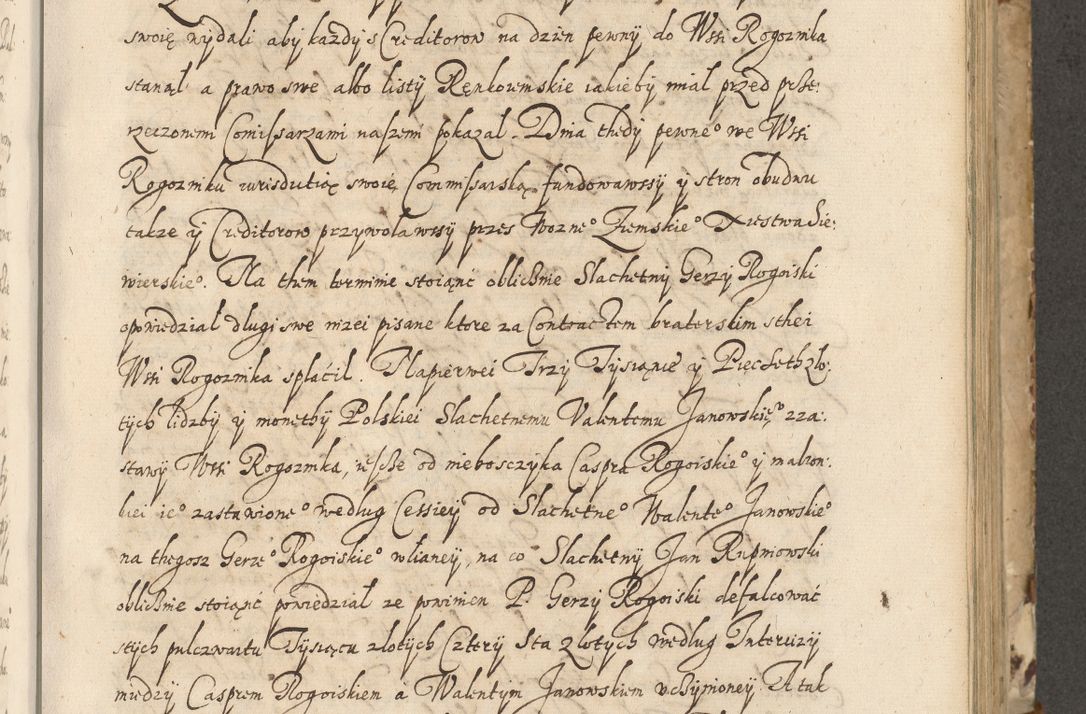 swoię wydali aby każdy s Creditorow na dzien pewny do Wsi Rogoznika
stanął a prawo swe albo listy Rękoiemskie iakieby miał przed prze:
rzeczonemi Comissarzami naszemi pokazał. Dnia thedy pewneº we Wsi
Rogozniku iurisdictią swoię Commissarską fundowawszy y stron obudwu
takze y Creditorow przywoławszy przes Wozneº Ziemskieº Xiestwa Sie:
wierskieº. Na them terminie stoiąnc obliczmie Slachetny Gerzy Rogoiski
opowiedział dlugi swe nizei pisane ktore za Contractem braterskim sthei
Wsi Rogoznika spłacił. Napierwei Trzy Tysiącie y Pięcseth zło:
tych lidzby y monethy Polskiei Slachetnemu Valentemu Janowskieº zza:
stawy Wsi Rogoznika, iescze od nieboszczyka Caspra Rogoiskieº y małzon:
kiei ieº zastawioneº według Cessiey od Slachetneº Walenteº Janowskieº
na thegosz Gerzeº Rogoiskieº wlianey, na co Slachetny Jan Rupniowski
obliczmie stoiąnc powiedział ze powinien P. Gerzy Rogoiski defalcować
stych pulczwartu Tysiącu złotych Cztery Sta Złotych według Intercizy
miedzy Casprem Rogoiskiem a Walentym Janowskiem uczynioney. A tak